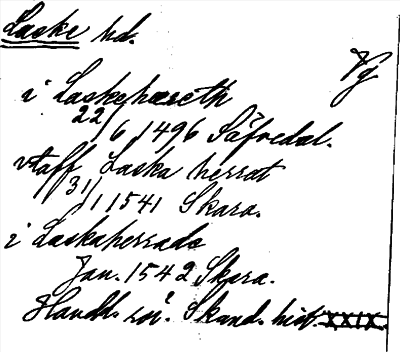 Laske hd.
Vg
i Laskehæreth
22/6 1496 Säfvedal.
utaff Laska herrat
31/1 1541 Skara.
i Laskaherrado
Jan. 1542 Skara.
Handl. rör. Skand. hist. XXIX.